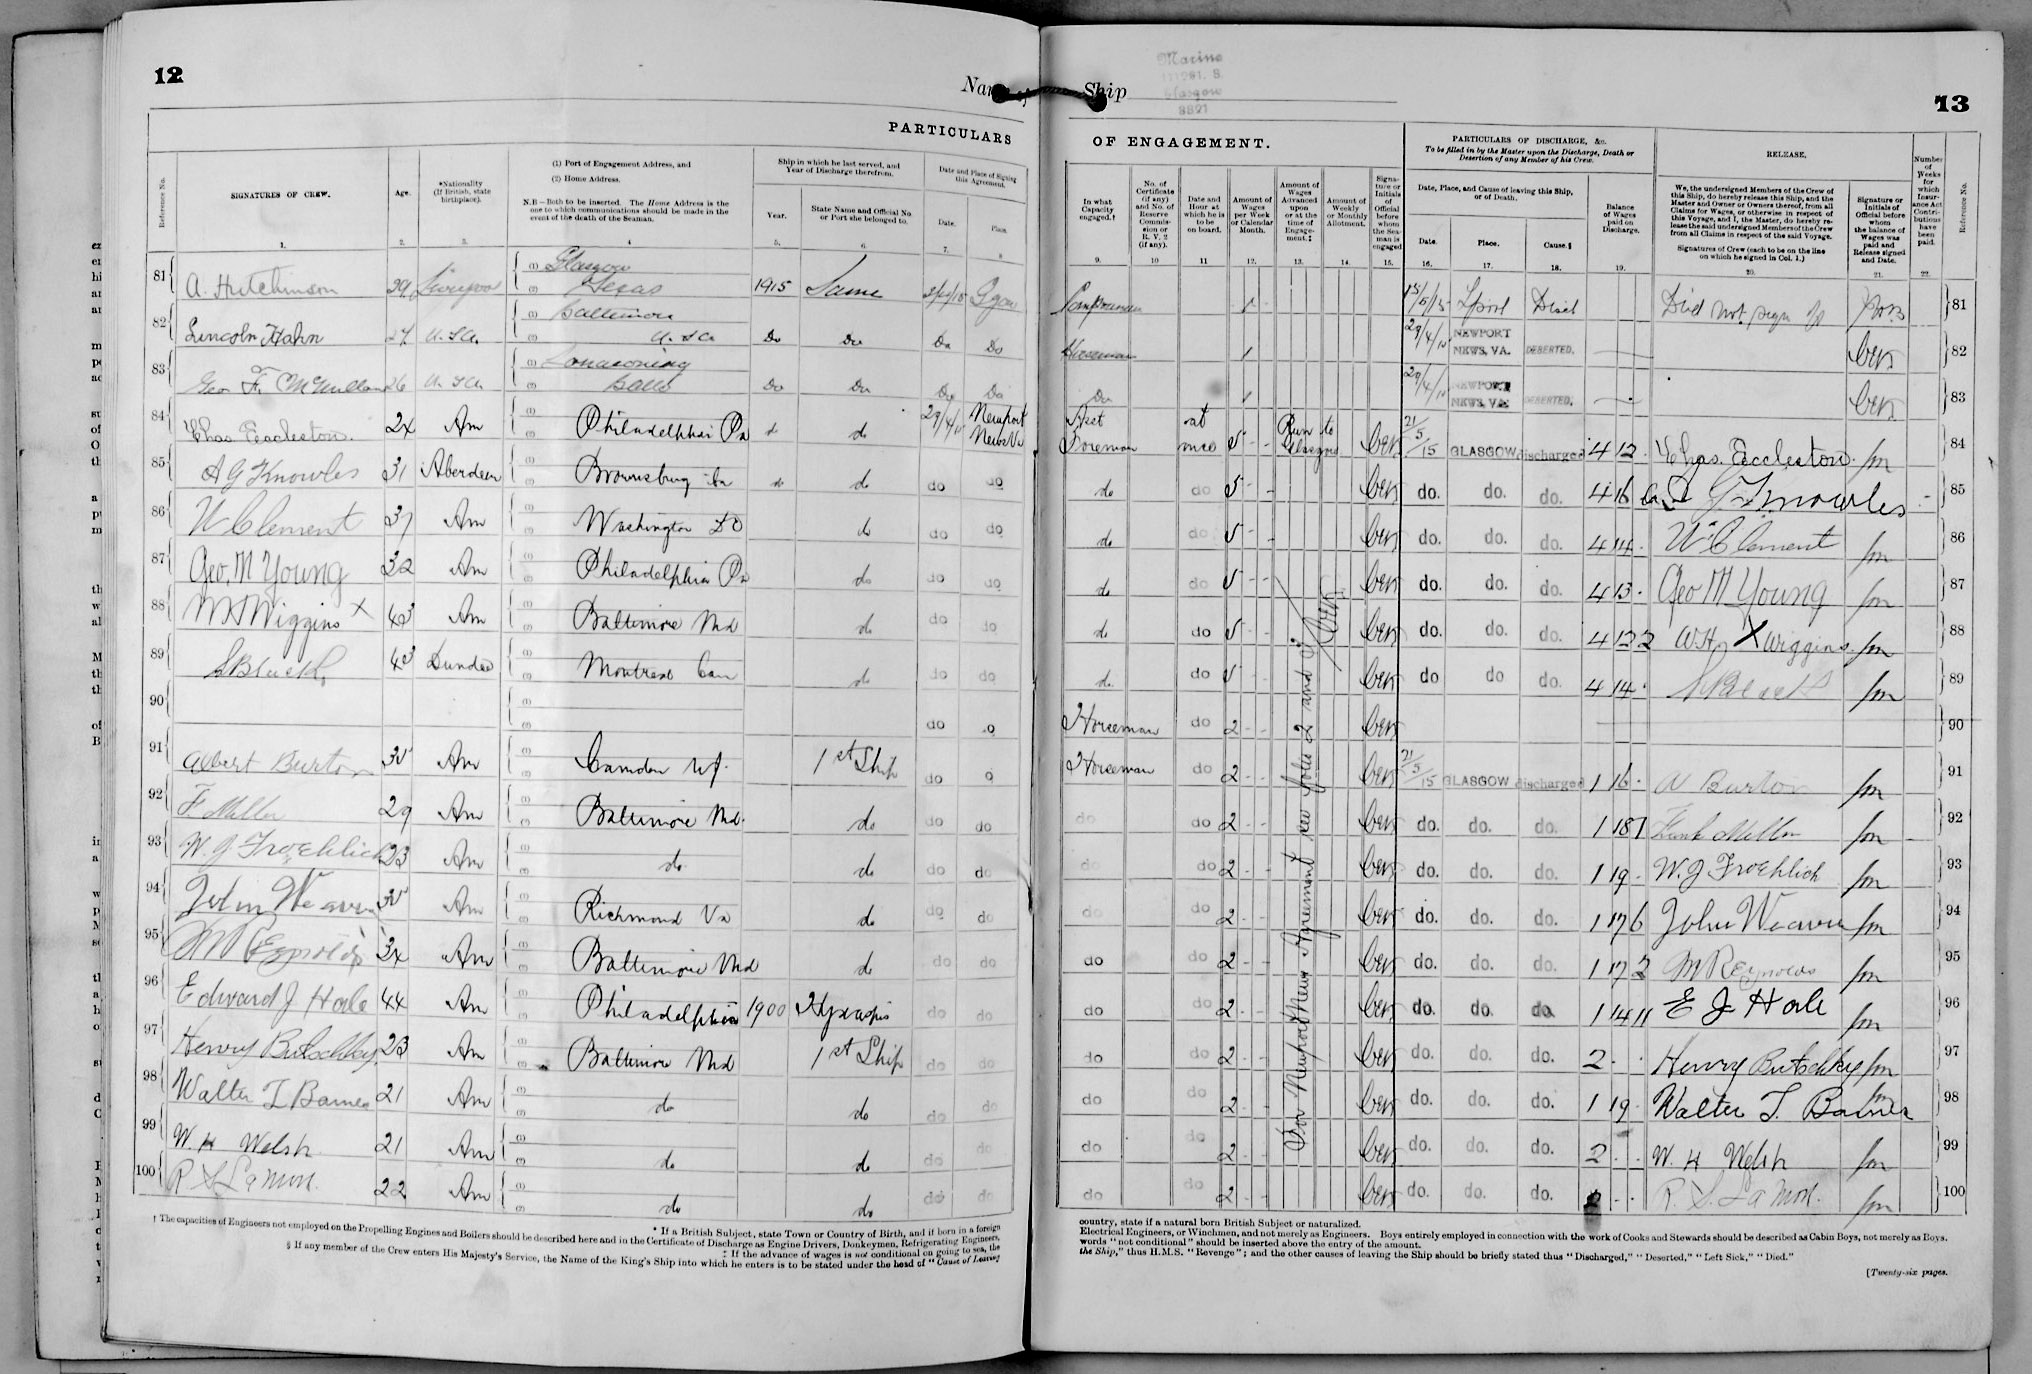 12
Name of Ship
Marine
Glasgow
13
PARTICULARS OF ENGAGEMENT.
Reference No.
SIGNATURES OF CREW.
Age.
*Nationality (If British, state birthplace).
(1) Port of Engagement Address, and
(2) Home Address.
N.B—Both to be inserted. The Home Address is the one to which communications should be made in the event of the death of the Seaman.
Ship in which he last served, and Year of Discharge therefrom.
Year.
State Name and Official No. or Port she belonged to.
Date and Place of Signing this Agreement.
Date.
Place.
In what Capacity engaged.†
No. of Certificate (if any) and No. of Reserve Commission or R. V. 2 (if any).
Date and Hour at which he is to be on board.
Amount of Wages per Week or Calendar Month.
Amount of Wages Advanced upon or at the time of Engagement.‡
Amount of Weekly or Monthly Allotment.
Signature or Initials of Official before whom the Seaman is engaged
PARTICULARS OF DISCHARGE, &c.
To be filled in by the Master upon the Discharge, Death or Desertion of any Member of his Crew.
Date, Place, and Cause of leaving this Ship, or of Death.
Date.
Place.
Cause.§
Balance of Wages paid on Discharge.
RELEASE,
We, the undersigned Members of the Crew of this Ship, do hereby release this Ship, and the Master and Owner or Owners thereof, from all Claims for Wages, or otherwise in respect of this Voyage, and I, the Master, do hereby release the said undersigned Members of the Crew from all Claims in respect of the said Voyage.
Signatures of Crew (each to be on the line on which he signed in Col. 1.)
Signature or Initials of Official before whom the balance of Wages was paid and Release signed and Date.
Number of Weeks for which Insurance Act Contributions have been paid.
Reference No.
81 A. Hutchinson 39 Liverpool Glasgow Texas 1915 Same Did not sign 81
82 Lincoln Hahn 27 U.S.A. Baltimore U.S.A. Do Do Do Do Horseman 1 29/4/15 NEWPORT NEWS, VA. DESERTED. 82
83 Geo F. McMullan 26 U.S.A. Lonaconing Do Do Do Do Do 1 29/4/15 NEWPORT NEWS, VA. DESERTED. 83
84 Chas. Eccleston 24 Am Philadelphia Pa do do 29/4/15 Newport News Va Asst Foreman at once 5 Run to Glasgow 21/5/15 GLASGOW discharged 4 12 Chas. Eccleston 84
85 A G Knowles 31 Aberdeen do do do do do do 5 do. do. do. 4 16 A G Knowles 85
86 W Clement 37 Am Washington DC do do do do do 5 do. do. do. 4 14 W Clement 86
87 Geo. M Young 32 Am Philadelphia Pa do do do do do 5 do. do. do. 4 13 Geo M Young 87
88 W H Wiggins X 43 Am Baltimore Md do do do do do 5 do. do. do. 4 12 2 W.H. X Wiggins 88
89 S Black 43 Dundee Montreal Can do do do do do 5 do do do. 4 14 S Black 89
90 do do Horseman do 2 90
91 Albert Burton 35 Am Camden NJ. 1st Ship do do Horseman do 2 21/5/15 GLASGOW discharged 1 16 A Burton 91
92 F Miller 29 Am Baltimore Md. do do do do do 2 do. do. do. 1 18 1 Frank Miller 92
93 W. J Froehlich 23 Am do do do do do do 2 do. do. do. 1 19 W. J Froehlich 93
94 John Weaver 35 Am Richmond Va do do do do do 2 do. do. do. 1 17 6 John Weaver 94
95 M Reynolds 34 Am Baltimore Md do do do do do 2 do. do. do. 1 17 2 M Reynolds 95
96 Edward J Hale 44 Am Philadelphia 1900 Hydaspis do do do do 2 do. do. do. 1 14 11 E J Hale 96
97 Henry Butschky 23 Am Baltimore Md 1st Ship do do do do 2 do. do. do. 2 Henry Butschky 97
98 Walter T Barnes 21 Am do do do do do do 2 do. do. do. 1 19 Walter T. Barnes 98
99 W. H Welsh 21 Am do do do do do do 2 do. do. do. 2 W. H Welsh 99
100 R S LaMon. 22 Am do do do do do do 2 do. do. do. R. S. LaMon. 100
For Newport News Agreement see folio 2 and
† The capacities of Engineers not employed on the Propelling Engines and Boilers should be described here and in the Certificate of Discharge as Engine Drivers, Donkeymen, Refrigerating Engineers,
* If a British Subject, state Town or Country of Birth, and if born in a foreign
‡ If the advance of wages is not conditional on going to sea, the
§ If any member of the Crew enters His Majesty's Service, the Name of the King's Ship into which he enters is to be stated under the head of "Cause of Leaving
country, state if a natural born British Subject or naturalized.
Electrical Engineers, or Winchmen, and not merely as Engineers. Boys entirely employed in connection with the work of Cooks and Stewards should be described as Cabin Boys, not merely as Boys.
words "not conditional" should be inserted above the entry of the amount.
the Ship," thus H.M.S. "Revenge"; and the other causes of leaving the Ship should be briefly stated thus "Discharged," "Deserted," "Left Sick," "Died."
[Twenty-six pages.